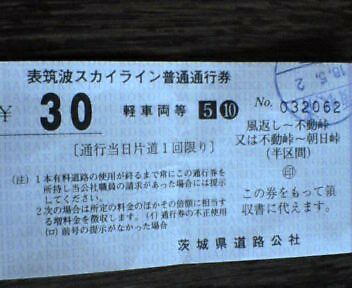 表筑波スカイライン普通通行券
¥ 30 軽車両等 5 10 No. 032062
〔通行当日片道1回限り〕
風返し〜不動峠
又は不動峠〜朝日峠
(半区間)
㊞
(注) 1本有料道路の使用が終るまで常にこの通行券を
所持し当公社職員の請求があった場合には提示
してください。
2次の場合は所定の料金のほかその倍額に相当す
る増料金を徴収します。(イ)通行券の不正使用
(ロ)前号の提示がなかった場合
この券をもって領
収書に代えます。
茨城県道路公社
5.2